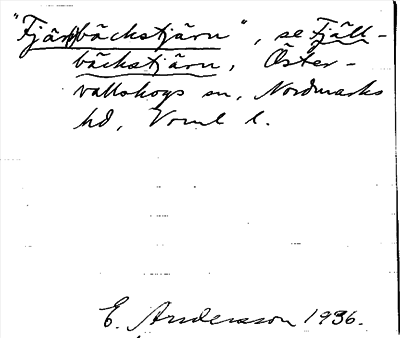 "Fjärbäckstjärn", se Fjäll-
bäckstjärn, Öster-
vallskogs sn, Nordmarks
hd, Vrml l.
E. Andersson 1936.